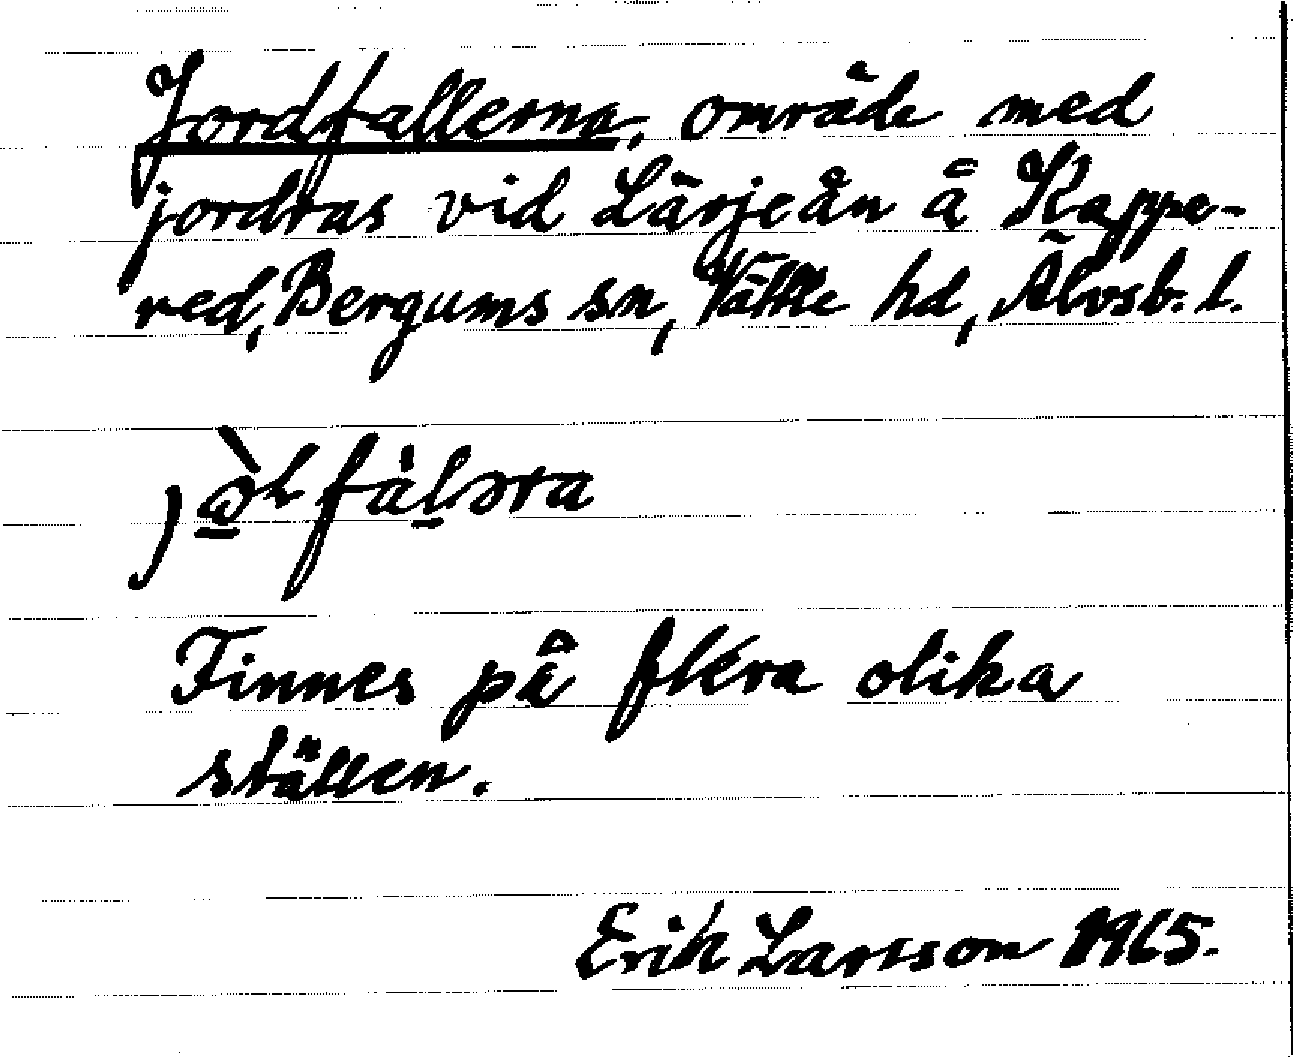 Jordfallerna, område med
jordras vid Lärjeån å Kappe-
red, Bergums sn, Vättle hd, Älvsb. l.
Finnes på flera olika
ställen.
Erik Larsson 1965.